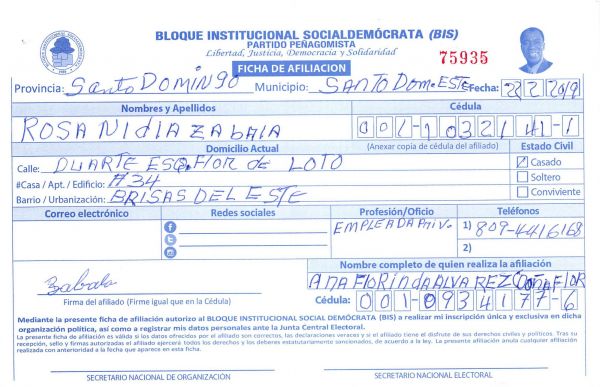 BLOQUE INSTITUCIONAL SOCIALDEMÓCRATA (BIS)
PARTIDO PEÑAGOMISTA
Libertad, Justicia, Democracia y Solidaridad
75935
FICHA DE AFILIACION
Provincia: Santo DOMINGO Municipio: SANTO Dom. ESTE Fecha: 2/2/2019
Nombres y Apellidos Cédula
ROSA NIDIA ZABALA 001-1032141-1
Domicilio Actual (Anexar copia de cédula del afiliado) Estado Civil
Calle: DUARTE ESQ. FLOR de LOTO Casado
#Casa / Apt. / Edificio: #34 Soltero
Barrio / Urbanización: BRISAS DEL ESTE Conviviente
Correo electrónico Redes sociales Profesión/Oficio Teléfonos
EMPLEADA Priv. 1) 809-4416168
2)
Nombre completo de quien realiza la afiliación
Zabala ANA FLORINDA ALVAREZ (DOÑA FLOR
Firma del afiliado (Firme igual que en la Cédula) Cédula: 001-0934177-6
Mediante la presente ficha de afiliación autorizo al BLOQUE INSTITUCIONAL SOCIAL DEMÓCRATA (BIS) a realizar mi inscripción única y exclusiva en dicha
organización política, así como a registrar mis datos personales ante la Junta Central Electoral.
La presente ficha de afiliación es válida si los datos ofrecidos por el afiliado son correctos, las declaraciones veraces y si el afiliado tiene el disfrute de sus derechos civiles y políticos. Tras su
recepción, sello y firmas autorizadas el afiliado ejercerá todos los derechos y los deberes estatutariamente sancionados, de acuerdo a la ley. La presente afiliación anula cualquier afiliación
realizada con anterioridad a la fecha que aparece en esta ficha.
SECRETARIO NACIONAL DE ORGANIZACIÓN SECRETARIO NACIONAL ELECTORAL